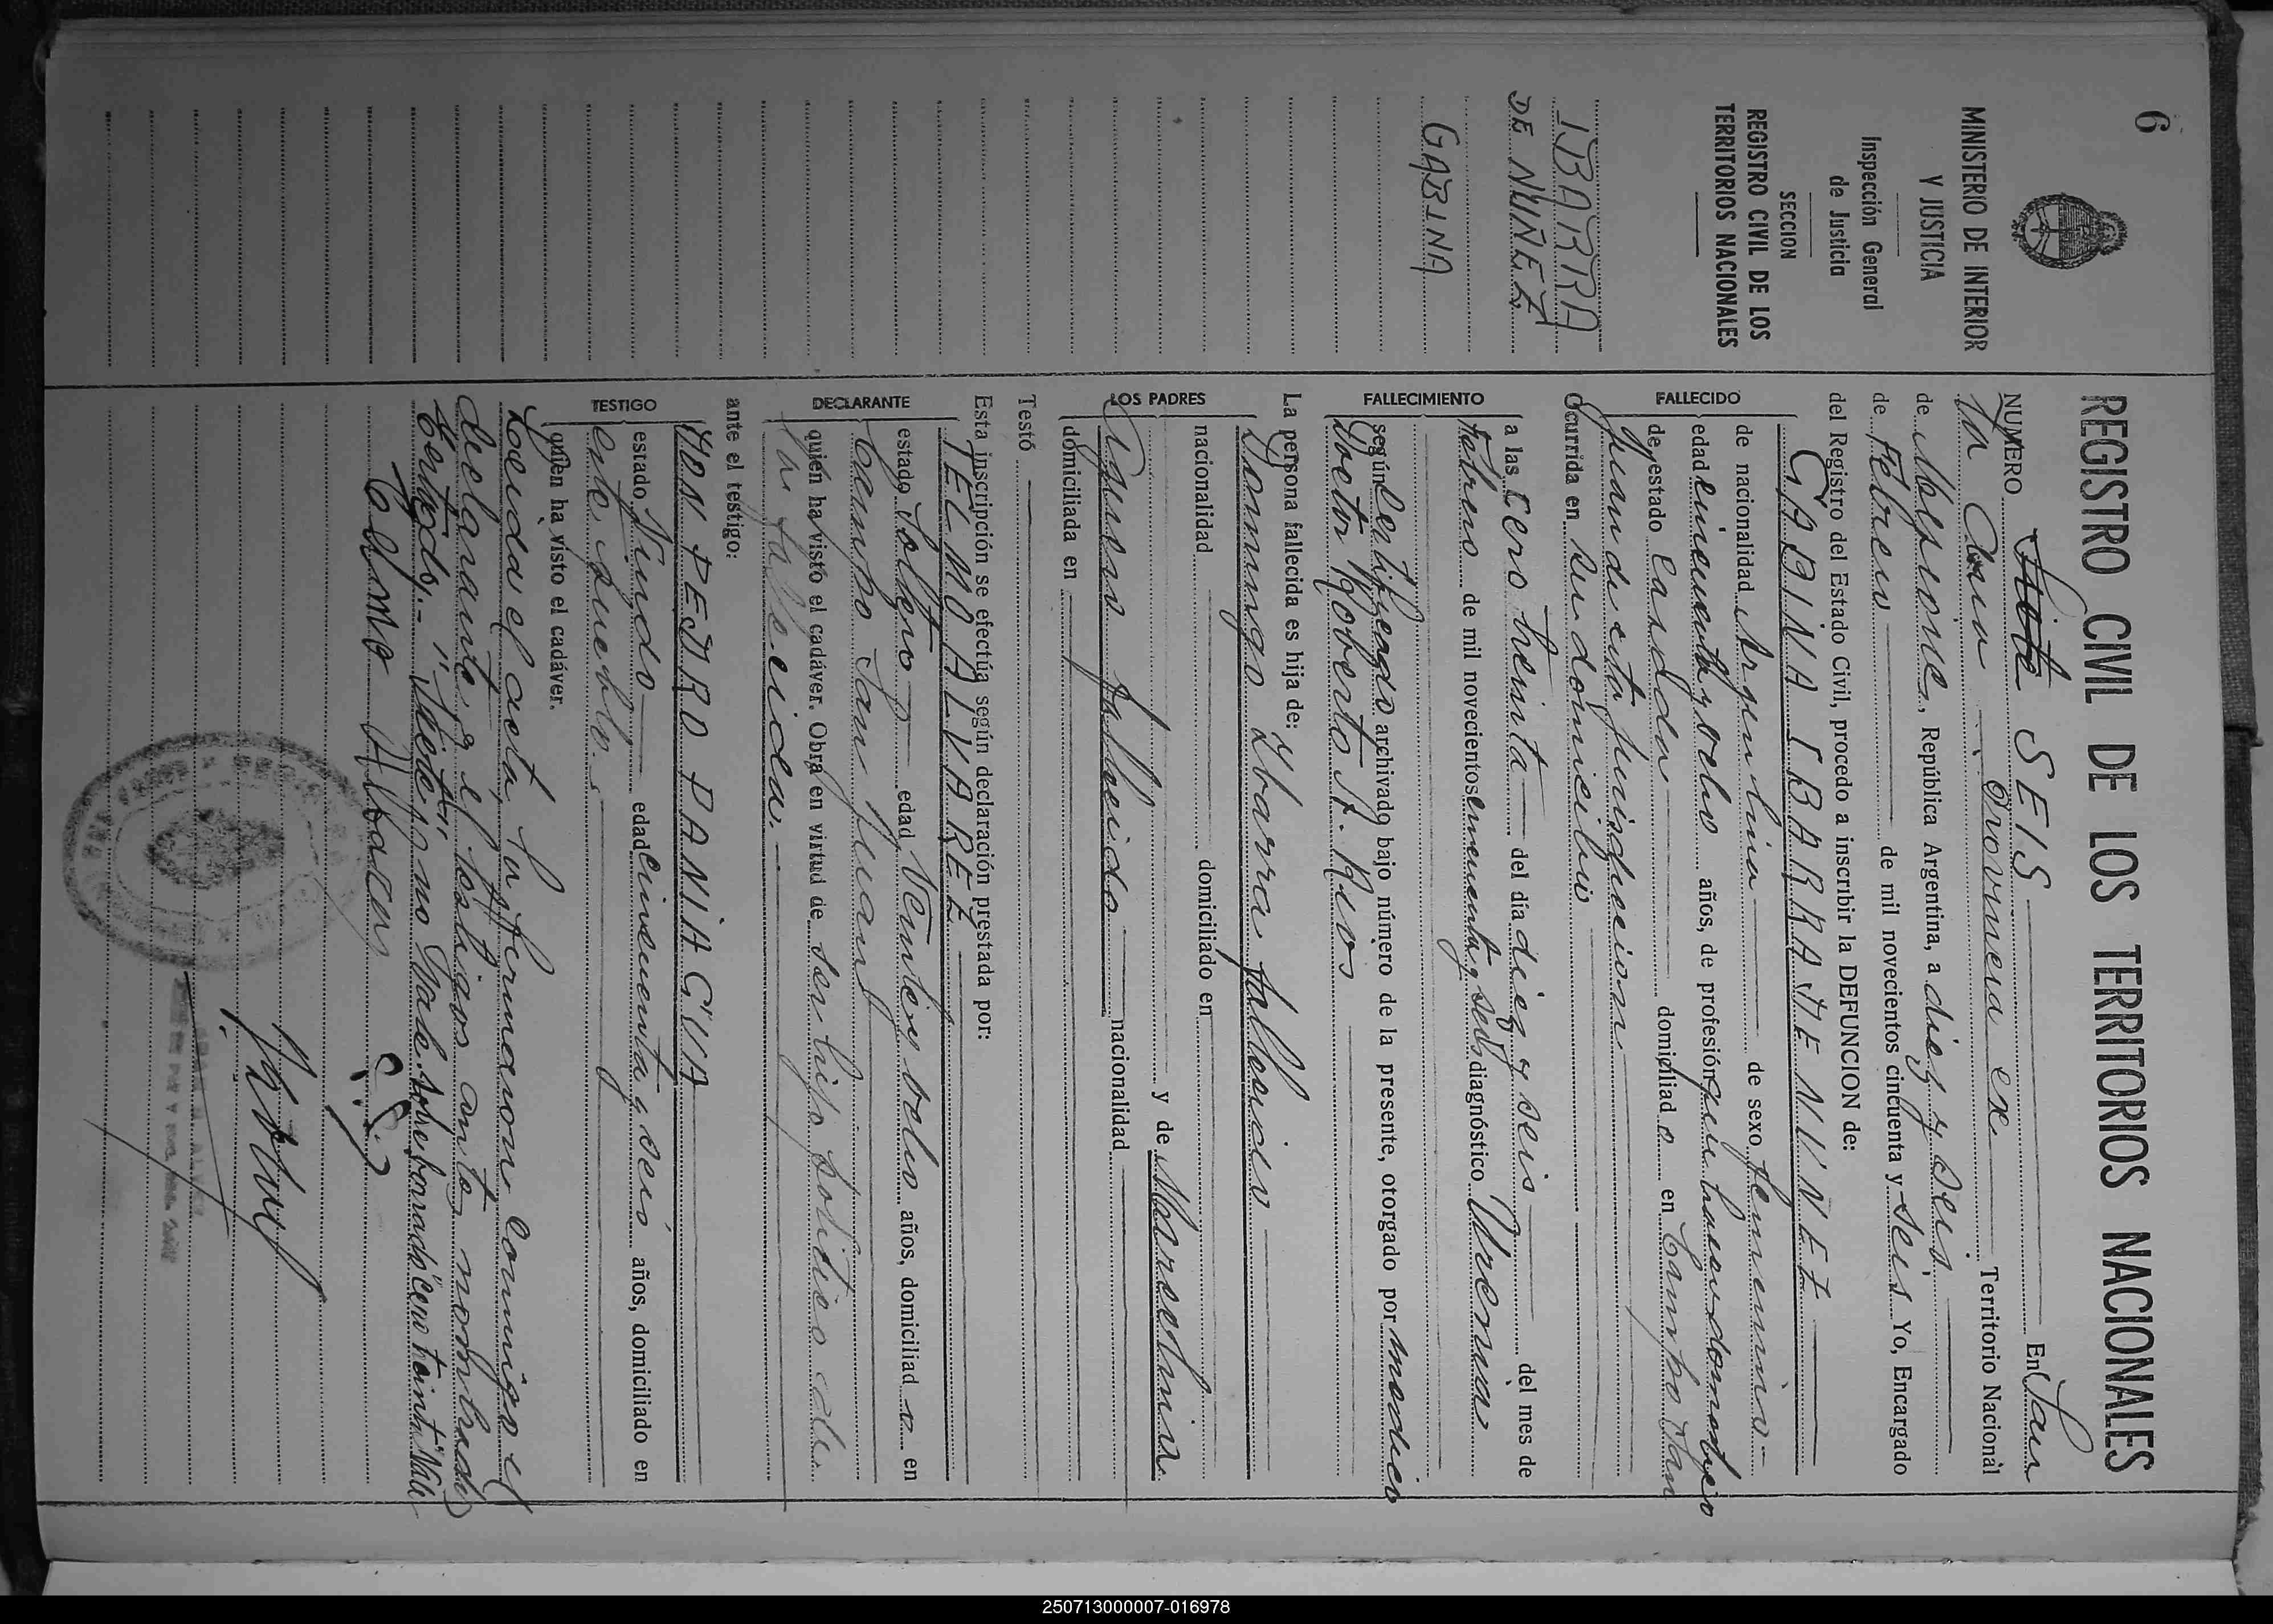 6
MINISTERIO DE INTERIOR
Y JUSTICIA
Inspección General
de Justicia
SECCION
REGISTRO CIVIL DE LOS
TERRITORIOS NACIONALES
IBARRA
DE NUÑEZ
GABINA
REGISTRO CIVIL DE LOS TERRITORIOS NACIONALES
NUMERO Siete SEIS En San
Provincia ex Territorio Nacional
de Misiones, República Argentina, a diez y seis
de Febrero de mil novecientos cincuenta y seis Yo, Encargado
del Registro del Estado Civil, procedo a inscribir la DEFUNCION de:
GABINA IBARRA DE NUÑEZ
FALLECIDO
de nacionalidad Argentina de sexo femenino
edad cincuenta y ocho años, de profesión quehacer domestico
de estado casada domiciliad a en Campo San
Juan de esta jurisdiccion
ocurrida en su domicilio
FALLECIMIENTO
a las cero treinta del día diez y seis del mes de
Febrero de mil novecientos cincuenta y seis diagnóstico Uremia
según Certificado archivado bajo número de la presente, otorgado por medico
Doctor Roberto A. Rios
La persona fallecida es hija de:
LOS PADRES
Domingo Ibarra fallecido
nacionalidad domiciliado en
y de Marcelina
fallecida nacionalidad
domiciliada en
Testó
Esta inscripción se efectúa según declaración prestada por:
DECLARANTE
TELMO ALVAREZ
estado soltero edad Veintiy ocho años, domiciliad o en
Campo San Juan
quién ha visto el cadáver. Obra en virtud de ser hijo politico de
la fallecida.
ante el testigo:
TESTIGO
DON PEDRO PANIAGUA
estado Viudo edad Cincuenta y seis años, domiciliado en
este pueblo.
quien ha visto el cadáver.
Leida el acta, la firmaron conmigo el
declarante y el testigo antes nombrado
Testado: "Siete" no Vale. Sobreborrado "cero treinta" Vale
Telmo Albarez